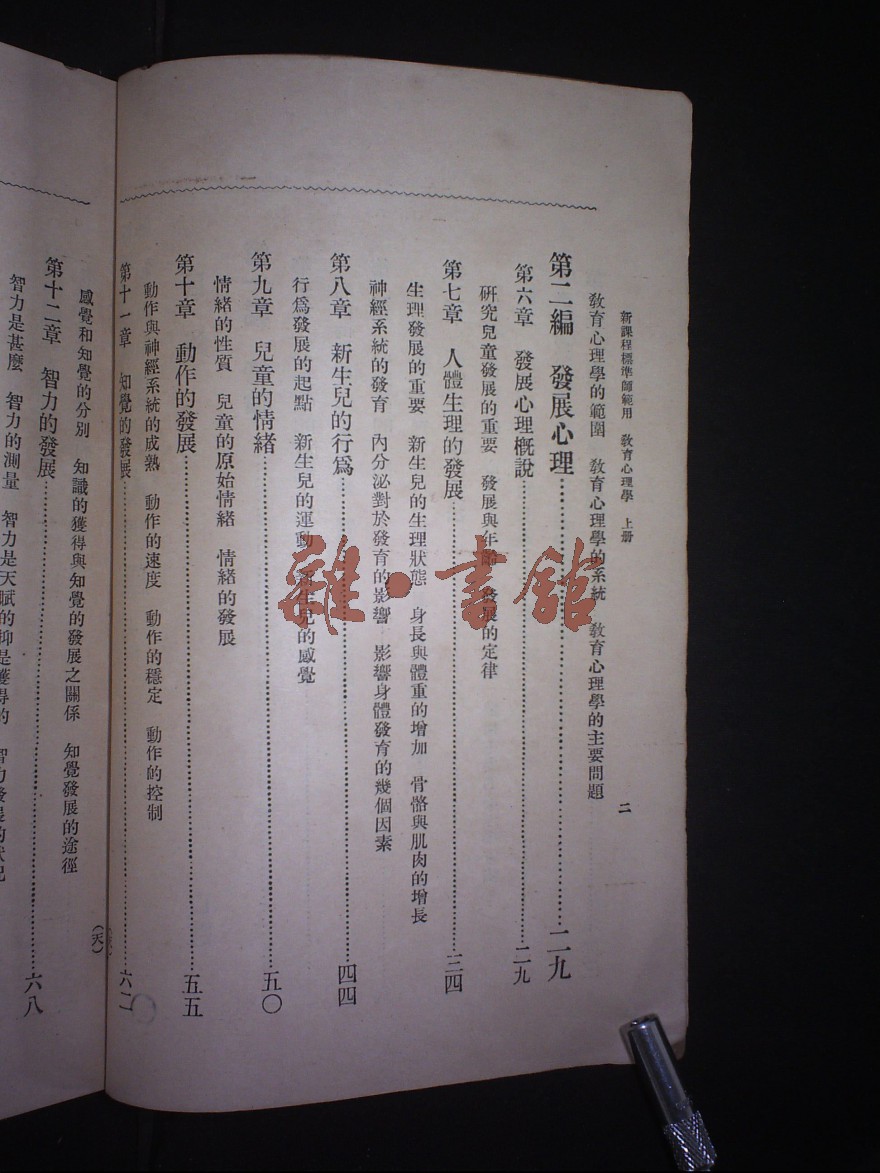 新課程標準師範用 教育心理學 上册 二
教育心理學的範圍 教育心理學的系統 教育心理學的主要問題
第二編 發展心理……二九
第六章 發展心理概說……二九
研究兒童發展的重要 發展與年齡 發展的定律
第七章 人體生理的發展……三四
生理發展的重要 新生兒的生理狀態 身長與體重的增加 骨骼與肌肉的增長
神經系統的發育 內分泌對於發育的影響 影響身體發育的幾個因素
第八章 新生兒的行爲……四四
行爲發展的起點 新生兒的運動 新生兒的感覺
第九章 兒童的情緒……五〇
情緒的性質 兒童的原始情緒 情緒的發展
第十章 動作的發展……五五
動作與神經系統的成熟 動作的速度 動作的穩定 動作的控制
第十一章 知覺的發展……六二
感覺和知覺的分別 知識的獲得與知覺的發展之關係 知覺發展的途徑
第十二章 智力的發展……六八
智力是甚麼 智力的測量 智力是天賦的抑是獲得的 智力發展的狀況
(天)
雜·書館